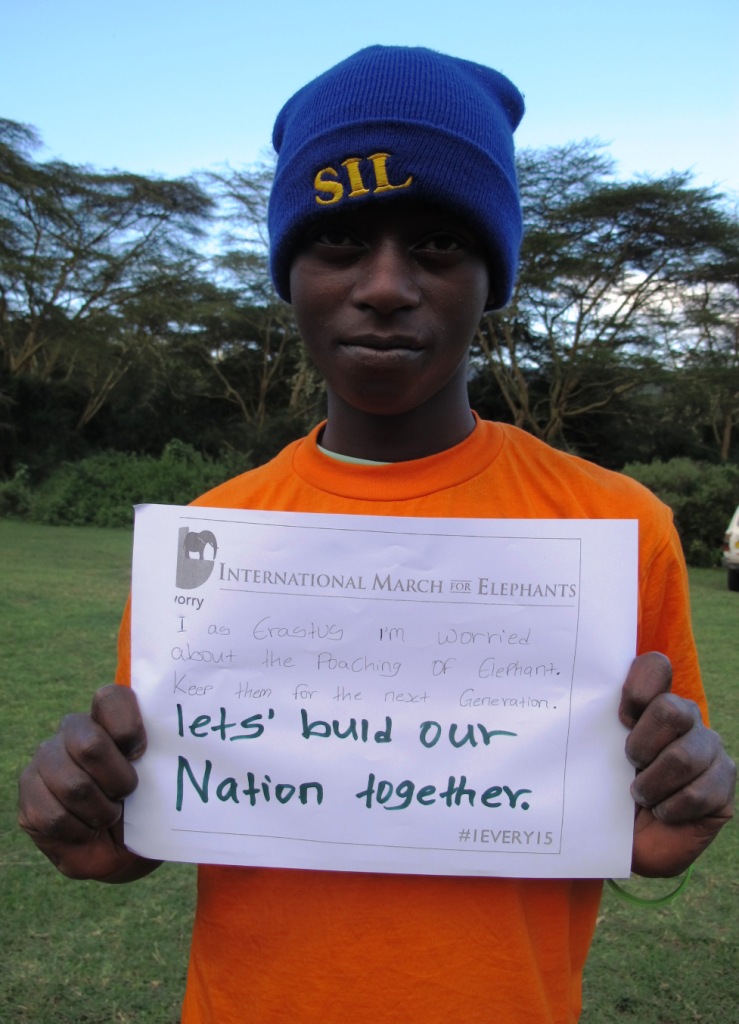 SIL
INTERNATIONAL MARCH FOR ELEPHANTS
worry
I as Erastus I'm worried
about the Poaching of Elephant.
Keep them for the next Generation.
lets' build our
Nation together.
#1EVERY15